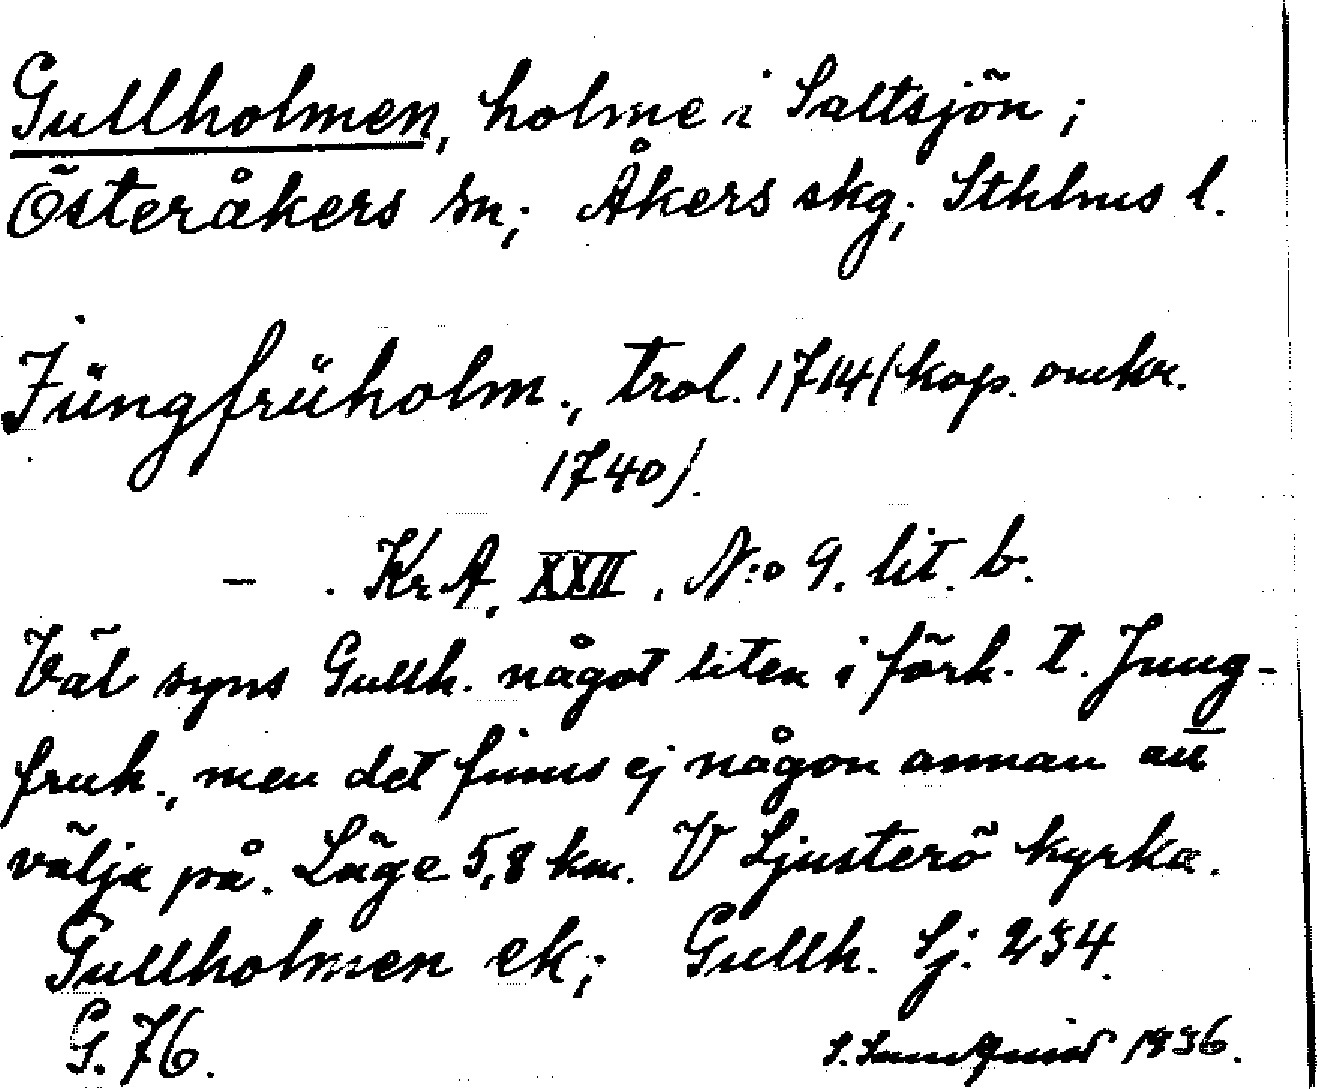 Gullholmen, holme i Saltsjön;
Österåkers sn; Åkers skg; Sthlms l.
Jüngfrüholm., trol. 1714 (kop. omkr.
1740).
– . KrA, XXII, N:o 9. lit. b.
Väl syns Gullh. något liten i förh. t. Jung-
fruh., men det finns ej någon annan att
välja på. Läge 5,8 km. V Ljusterö kyrka.
Gullholmen ek; Gullh. Sj: 234.
G. 76.
1936.